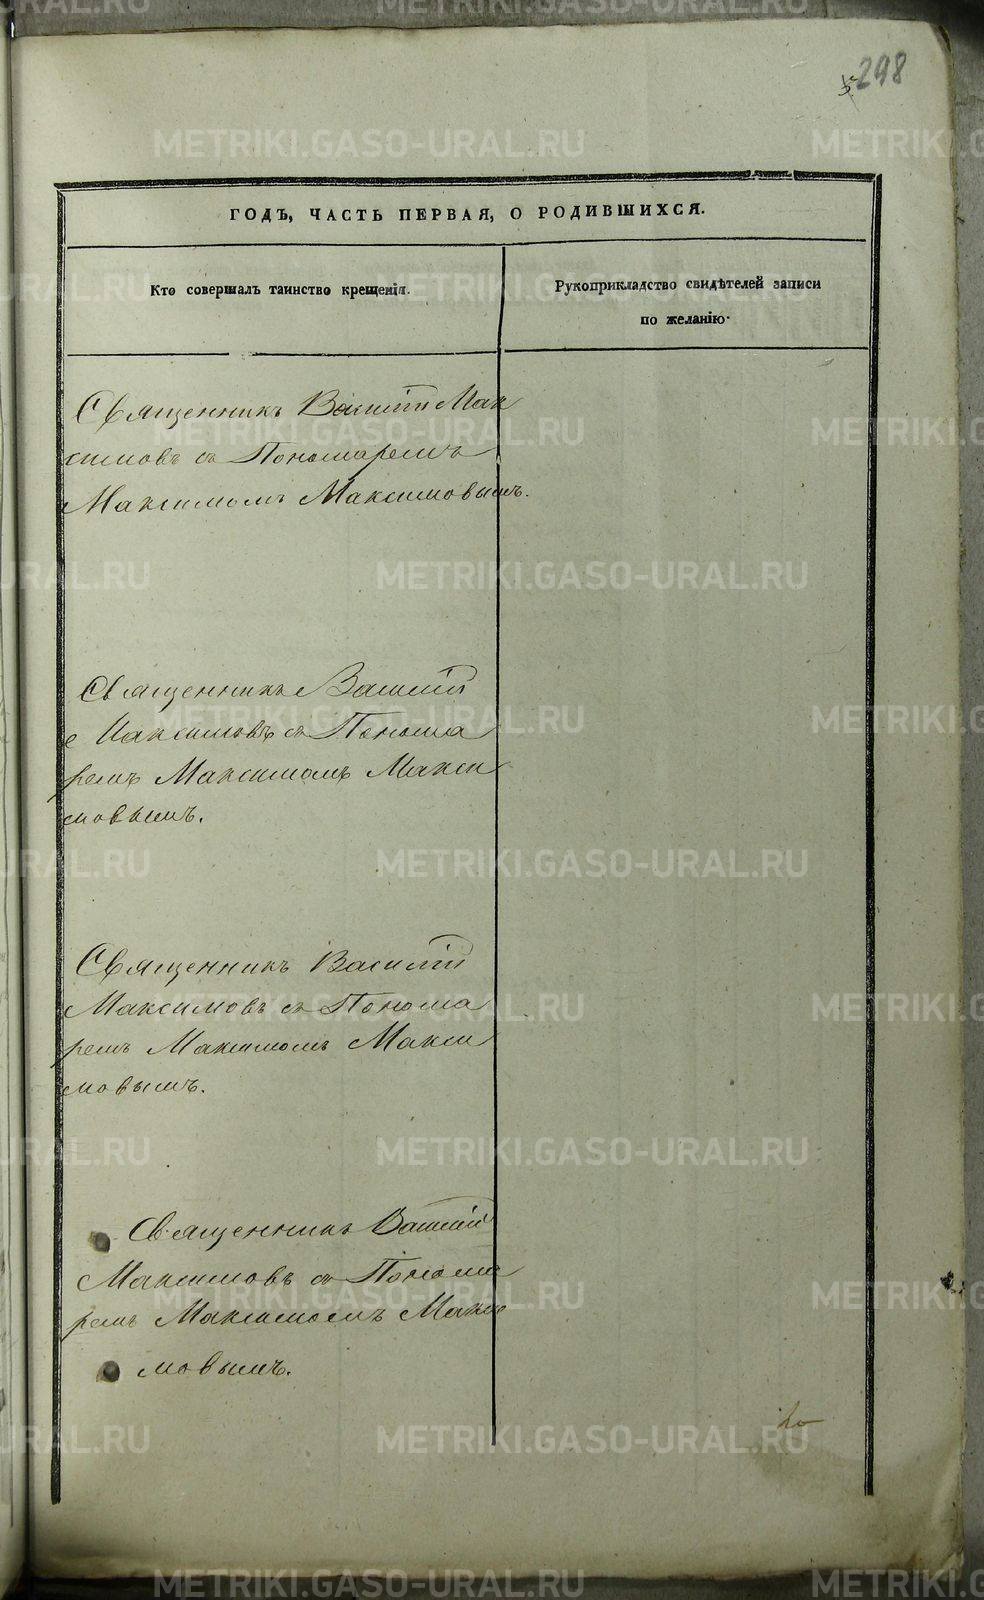 298
ГОДЪ, ЧАСТЬ ПЕРВАЯ, О РОДИВШИХСЯ.
Кто совершалъ таинство крещенія.
Рукоприкладство свидѣтелей записи
по желанію.
Священникъ Василій Мак
симовъ съ Пономаремъ
Максимомъ Максимовымъ.
Священникъ Василій
Максимовъ съ Понома
ремъ Максимомъ Макси
мовымъ.
Священникъ Василій
Максимовъ съ Понома
ремъ Максимомъ Макси
мовымъ.
Священникъ Василій
Максимовъ съ Понома
ремъ Максимомъ Макси
мовымъ.
METRIKI.GASO-URAL.RU